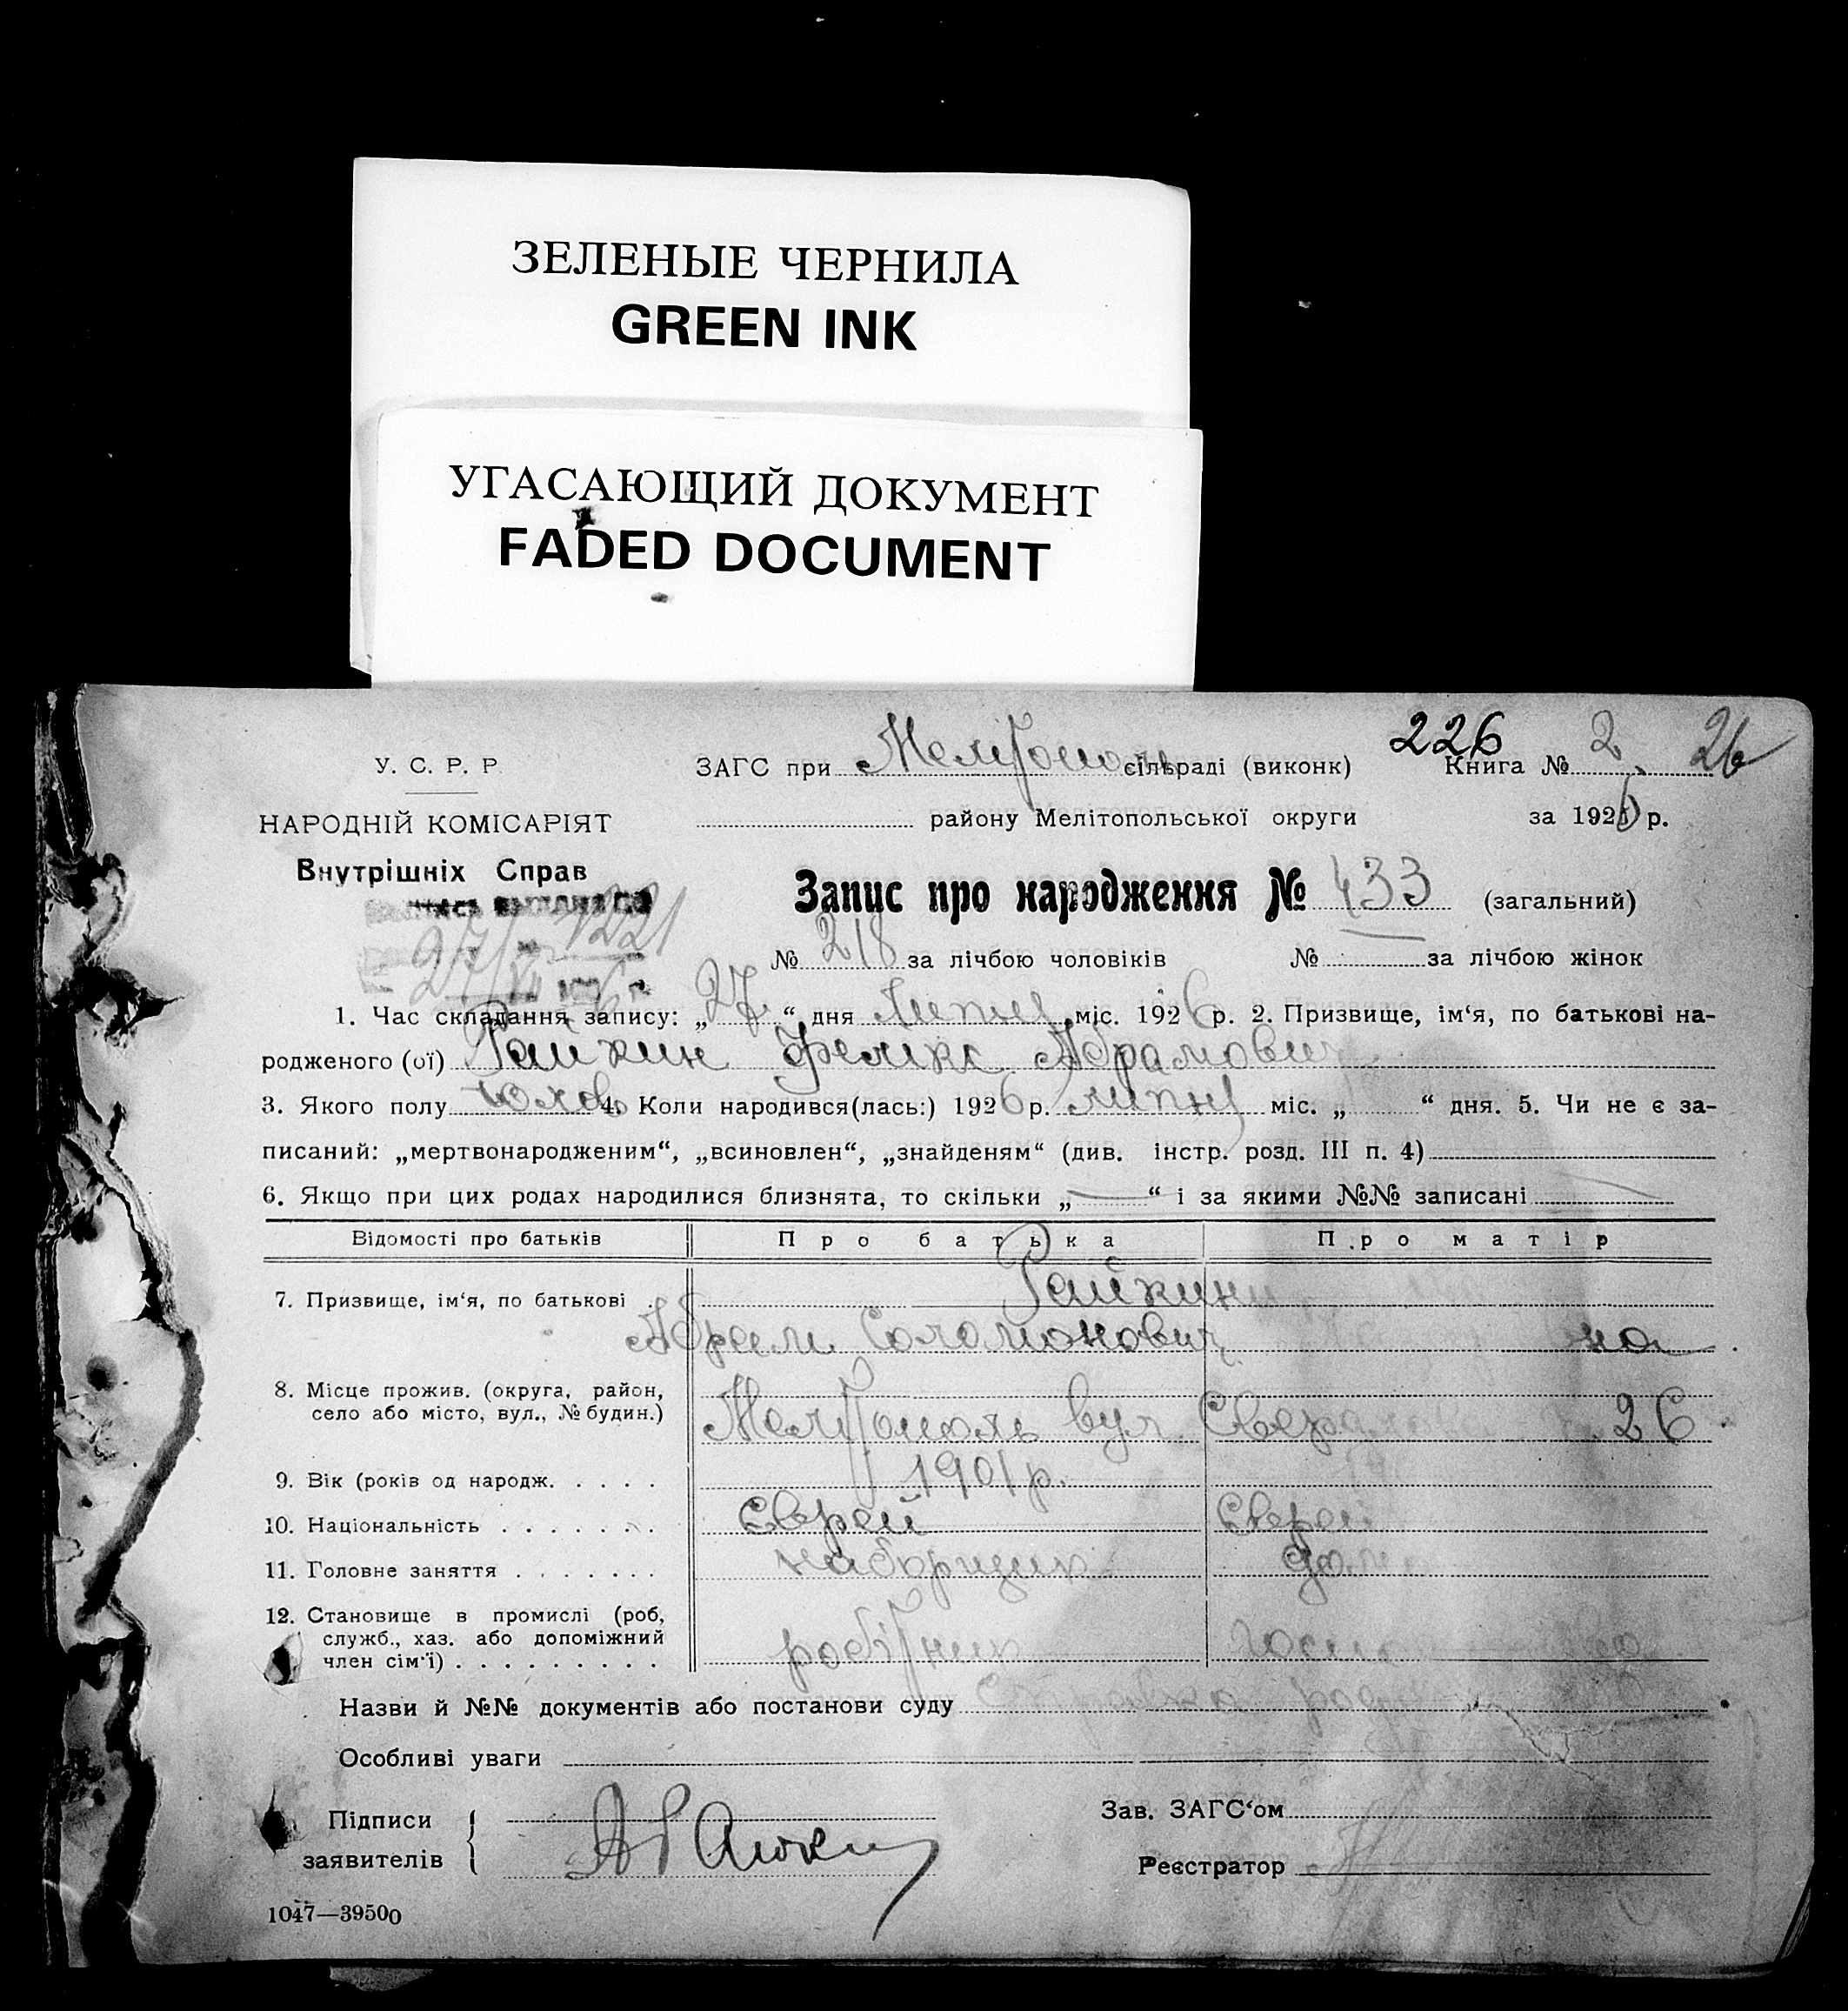 ЗЕЛЕНЫЕ ЧЕРНИЛА
GREEN INK
УГАСАЮЩИЙ ДОКУМЕНТ
FADED DOCUMENT
226 26
У. С. Р. Р. ЗАГС при Мелітополь сільраді (виконк) Книга № 2
НАРОДНІЙ КОМІСАРІЯТ району Мелітопольської округи за 1926 р.
Внутрішніх Справ
Запис про народження № 433 (загальний)
27/ 1221
№ 218 за лічбою чоловіків № за лічбою жінок
1. Час складання запису: „27“ дня Липня міс. 1926 р. 2. Призвище, ім‘я, по батькові на-
родженого (ої) Райкин Фелікс Абрамович
3. Якого полу чолов 4. Коли народився(лась:) 1926 р. липня міс. „ “ дня. 5. Чи не є за-
писаний: „мертвонародженим“, „всиновлен“, „знайденям“ (див. інстр. розд. III п. 4)
6. Якщо при цих родах народилися близнята, то скільки „ “ і за якими №№ записані
Відомості про батьків Про батька Про матір
7. Призвище, ім‘я, по батькові . Райкини
Абрам Соломонович на
8. Місце прожив. (округа, район,
село або місто, вул., № будин.) Мелітополь вул. 26
9. Вік (років од народж. . . . . 1901 р.
10. Національність . . . . . . . Єврей Єврей
11. Головне заняття . . . . . . . наборщик
12. Становище в промислі (роб,
служб., хаз. або допоміжний
член сім‘ї) . . . . . . . . . робітник
Назви й №№ документів або постанови суду
Особливі уваги
Підписи
заявителів
А Райкин
Зав. ЗАГС‘ом
Реєстратор
1047—39500